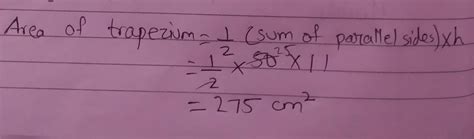 Area of trapezium = 1/2 (sum of parallel sides) x h
= 1/2 x 50 25 x 11
= 275 cm²